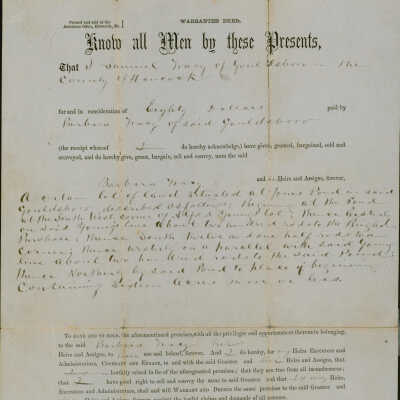 Printed and sold at the
WARRANTEE DEED.
Know all Men by these Presents,
That I Samuel Tracy of Gouldsboro in the
County of Hancock
for and in consideration of Eighty Dollars paid by
Barbara Tracy of said Gouldsboro
(the receipt whereof I do hereby acknowledge,) have given, granted, bargained, sold and
conveyed, and do hereby give, grant, bargain, sell and convey, unto the said
Barbara Tracy
and Heirs and Assigns, forever,
A certain lot of land situated at Jones Pond in said
Gouldsboro described as follows, Begining at the Pond
at the South West corner of Young lot; thence Easterly
on said Youngs line about two hundred rods to the
Purchase; thence South twelve and one half rods to a
corner; thence westerly on a parallel with said Young
line about two hundred rods to the said Pond;
thence Northerly by said Pond to place of begining
Containing Sixteen acres more or less.
To have and to hold, the aforementioned premises, with all the privileges and appurtenances thereunto belonging,
to the said Barbara Tracy her
Heirs and Assigns, to use and behoof, forever. And I do hereby, for my Heirs Executors and
Administrators, Covenant and Engage, to and with the said Grantee and Heirs and Assigns, that
lawfully seized in fee of the aforegranted premises; that they are free from all incumbrances;
that I have good right to sell and convey the same to said Grantee and that I my Heirs
Executors and Administrators, shall and will Warrant and Defend the same premises to the said Grantee and
Heirs and Assigns, forever, against the lawful claims and demands of all persons.